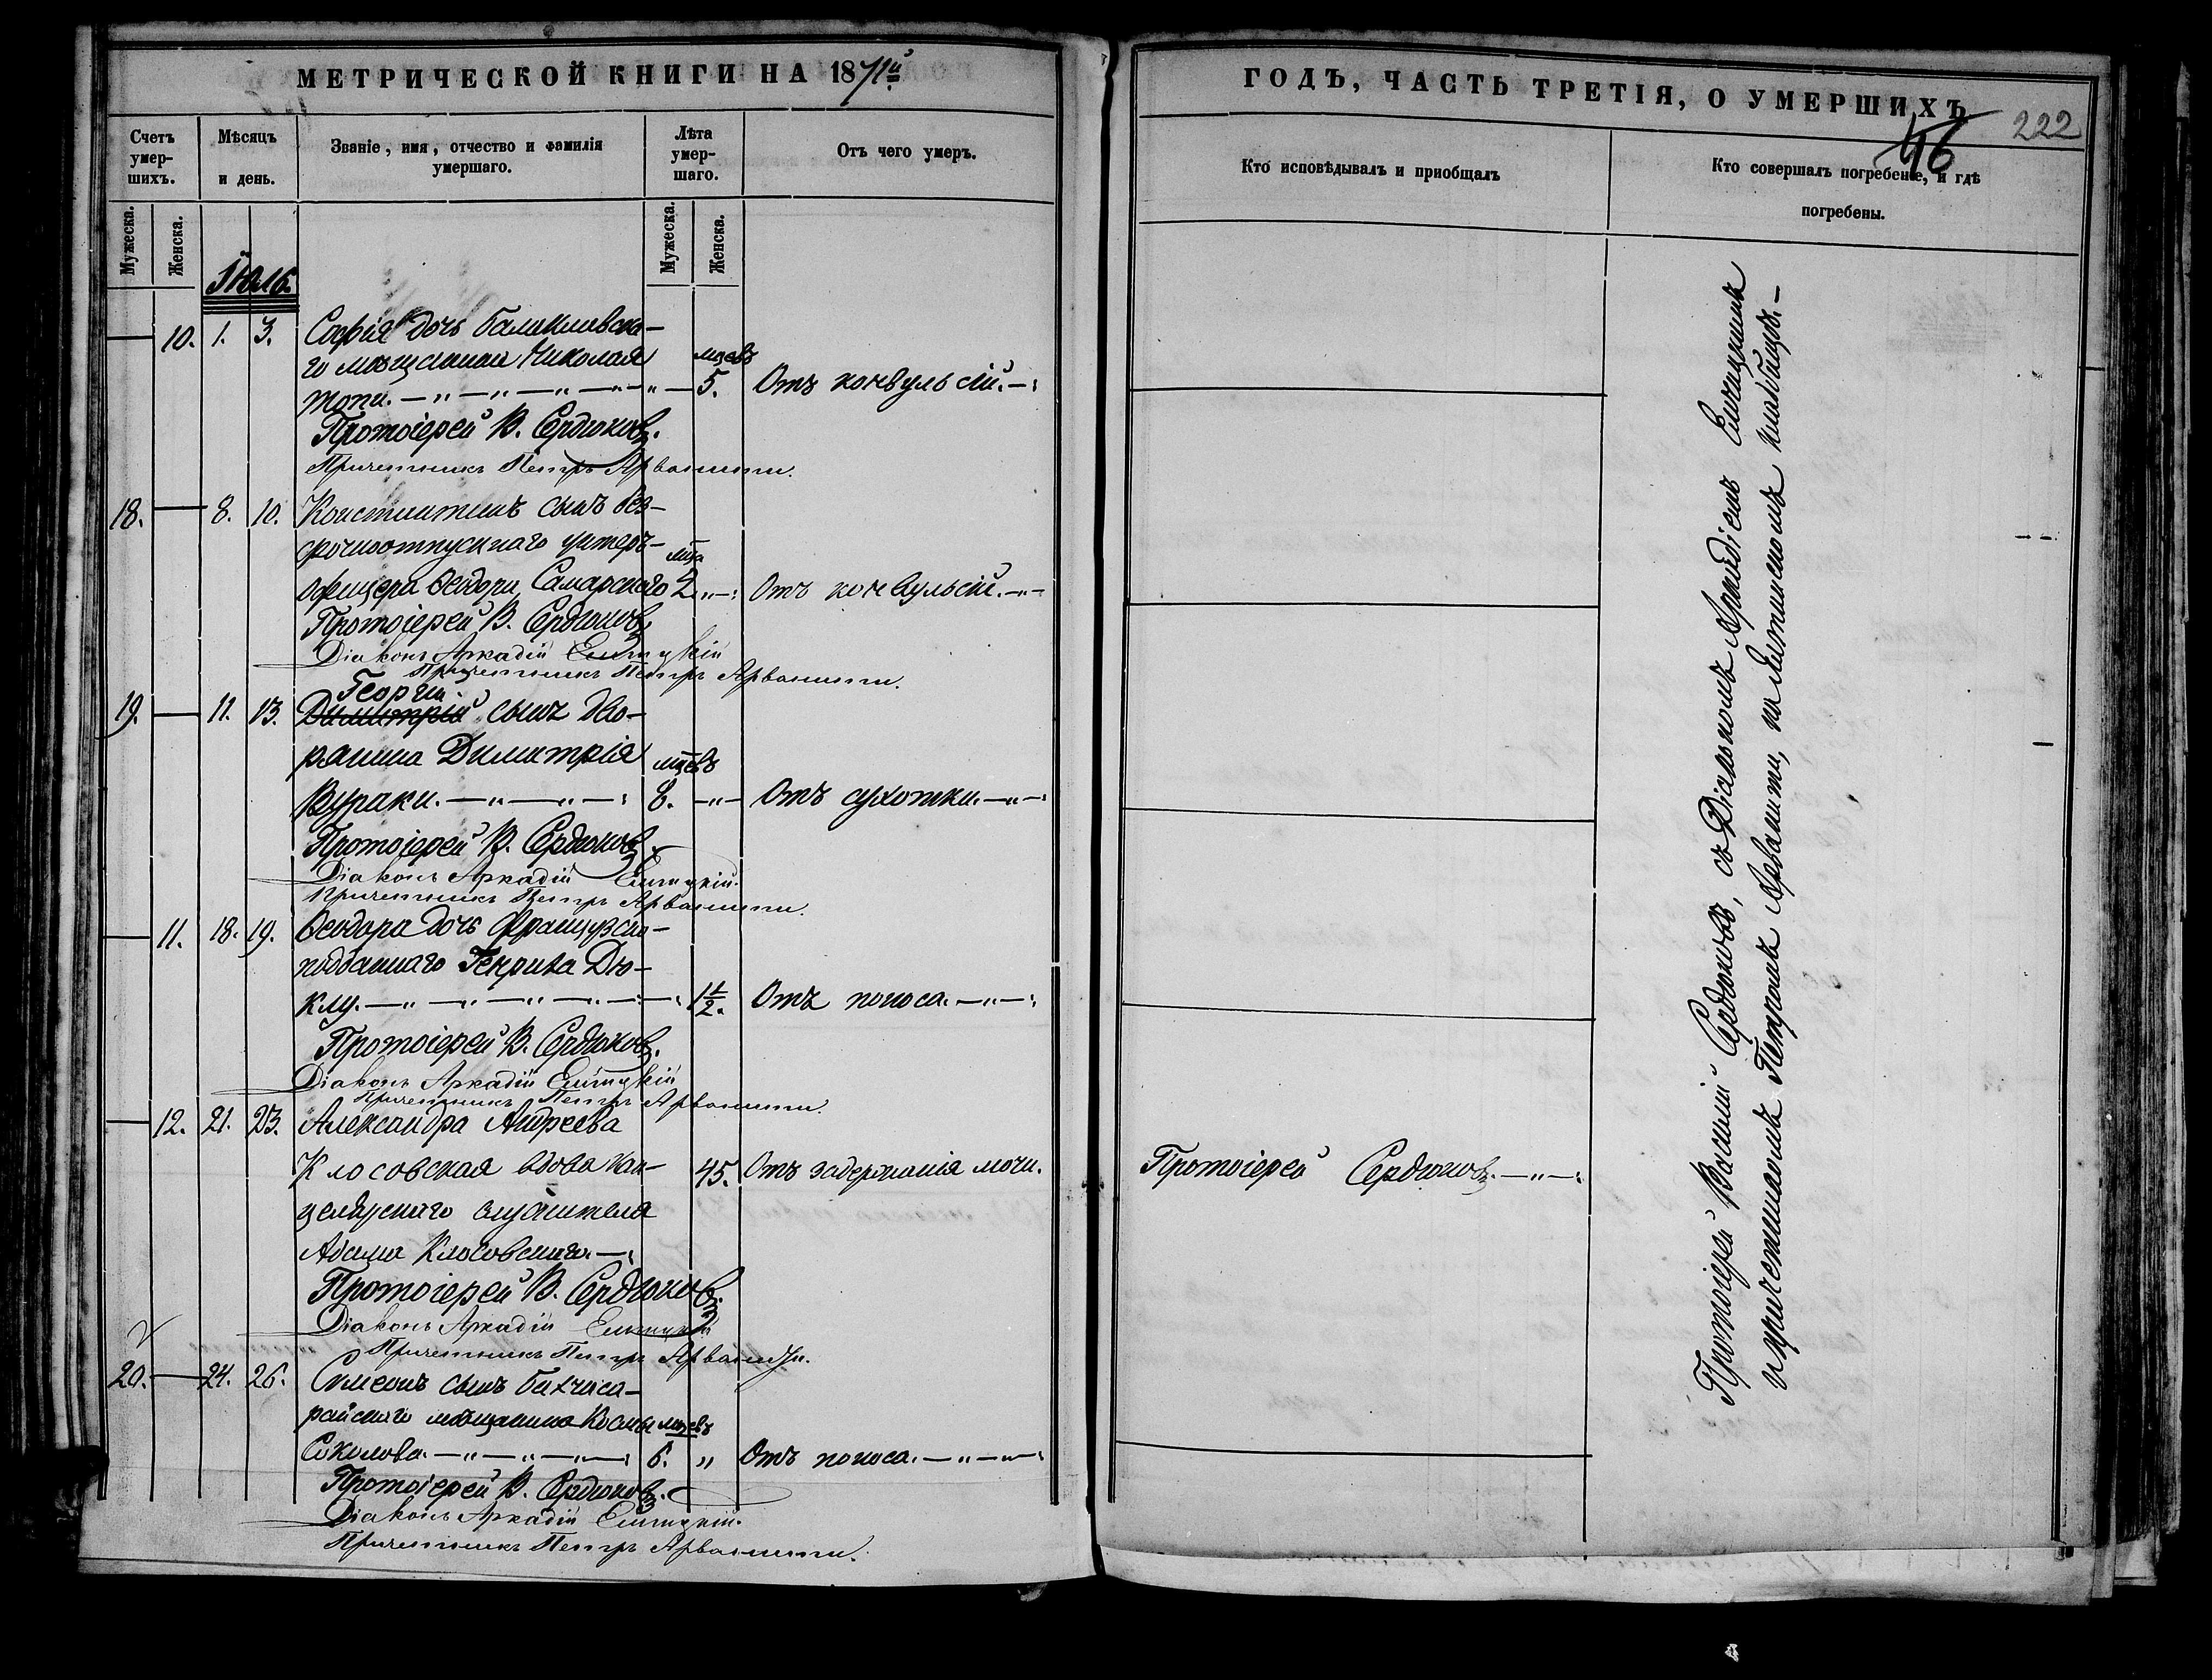 МЕТРИЧЕСКОЙ КНИГИ НА 1871й
Счетъ умер-шихъ.
Мѣсяцъ и день.
Званіе, имя, отчество и фамилія умершаго.
Лѣта умер-шаго.
Отъ чего умеръ.
Мужеска.
Женска.
Мужеска.
Женска.
10. 1. 3. Софія дочь балаклавска-
го мѣщанина Николая мцевъ
5. Отъ конвульсій.
Протоіерей В. Сердюковъ.
Причетникъ Петръ Арванити.
18. 8. 10. Константинъ сынъ без-
срочноотпускнаго унтеръ-
офицера Ѳеодора Самарскаго 2 Отъ конвульсій.
Протоіерей В. Сердюковъ
Діаконъ Аркадій
Причетникъ Петръ Арванити.
Георгій
19. 11. 13. Димитрій сынъ дво-
рянина Димитрія мцевъ
Вураки. 8. Отъ сухотки.
Протоіерей В. Сердюковъ.
Діаконъ Аркадій
Причетникъ Петръ Арванити.
11. 18. 19. Ѳеодора дочь французско-
подданнаго Генриха Дю-
клу. 1 1/2. Отъ поноса.
Протоіерей В. Сердюковъ.
Діаконъ Аркадій
Причетникъ Петръ Арванити.
12. 21. 23. Александра Андреева
Клосовская вдова кан- 45. Отъ задержанія мочи.
целярскаго служителя
Адама Клосовскаго.
Протоіерей В. Сердюковъ.
Діаконъ Аркадій
Причетникъ Петръ Арванити.
20. 24. 26. Симеонъ сынъ бахчиса-
райскаго мѣщанина Космы мцевъ
Соколова. 6. " Отъ поноса.
Протоіерей В. Сердюковъ.
Діаконъ Аркадій
Причетникъ Петръ Арванити.
ГОДЪ, ЧАСТЬ ТРЕТІЯ, О УМЕРШИХЪ
46
222
Кто исповѣдывалъ и пріобщалъ
Кто совершалъ погребеніе, и гдѣ погребены.
Протоіерей Сердюковъ.
Протоіерей Василій Сердюковъ, съ Діакономъ Аркадіемъ
и причетникомъ Петромъ Арванити, на кладбищѣ.